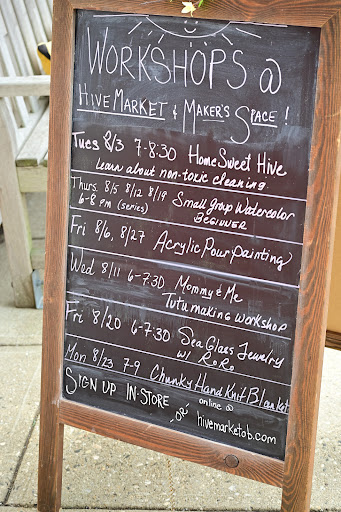 WORKSHOPS @
HIVE MARKET & MAKER'S SPACE!
Tues 8/3 7-8:30 Home Sweet Hive
Learn about non-toxic cleaning
Thurs. 8/5 8/12 8/19 Small Group Watercolor
6-8pm (series) BEGINNER
Fri 8/6, 8/27 Acrylic Pour-painting
Wed 8/11 6-7:30 Mommy & Me
Tutu making workshop
Fri 8/20 6-7:30 Sea Glass Jewelry
w/ RoRo
Mon 8/23 7-9 Chunky Hand Knit Blanket
SIGN UP IN-STORE online @
hivemarketob.com